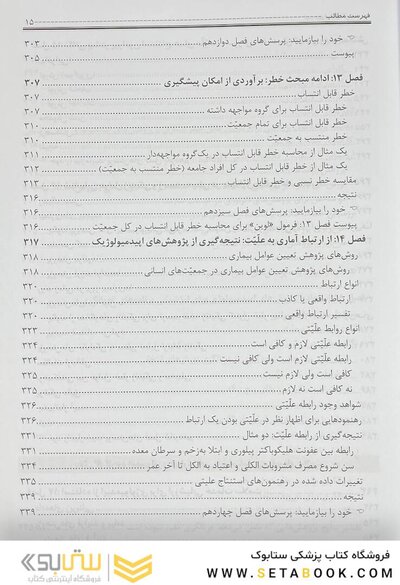 فهرست مطالب ۱۵
خود را بیازمایید: پرسش‌های فصل دوازدهم ۳۰۳
پیوست ۳۰۵
فصل ۱۳: ادامه مبحث خطر: برآوردی از امکان پیشگیری ۳۰۷
خطر قابل انتساب ۳۰۷
خطر قابل انتساب برای گروه مواجهه داشته ۳۰۷
خطر قابل انتساب برای تمام جمعیّت ۳۱۰
خطر منتسب به جمعیّت ۳۱۰
یک مثال از محاسبه خطر قابل انتساب در یک‌گروه مواجهه‌دار ۳۱۱
یک مثال از خطر قابل انتساب در کل افراد جامعه (خطر منتسب به جمعیّت) ۳۱۲
مقایسه خطر نسبی و خطر قابل انتساب ۳۱۳
نتیجه ۳۱۶
خود را بیازمایید: پرسش‌های فصل سیزدهم ۳۱۶
پیوست فصل ۱۳: فرمول «لوین» برای محاسبه خطر قابل انتساب در کل جمعیّت ۳۱۶
فصل ۱۴: از ارتباط آماری به علّیّت: نتیجه‌گیری از پژوهش‌های اپیدمیولوژیک ۳۱۷
روش‌های پژوهش تعیین عوامل بیماری ۳۱۸
روش‌های پژوهش تعیین عوامل بیماری در جمعیّت‌های انسانی ۳۱۸
انواع ارتباط ۳۲۰
ارتباط واقعی یا کاذب ۳۲۰
تفسیر ارتباط واقعی ۳۲۰
انواع روابط علّیّتی ۳۲۳
رابطه علّیّتی لازم و کافی است ۳۲۴
رابطه علّیّتی لازم است ولی کافی نیست ۳۲۴
کافی است ولی لازم نیست ۳۲۵
نه کافی است نه لازم ۳۲۵
شواهد وجود رابطه علّیّتی ۳۲۶
رهنمودهایی برای اظهار نظر در علّیّتی بودن یک ارتباط ۳۲۶
نتیجه‌گیری از رابطه علّیّت: دو مثال ۳۳۱
رابطه بین عفونت هلیکوباکتر پیلوری و ابتلا به‌زخم و سرطان معده ۳۳۱
سن شروع مصرف مشروبات الکلی و اعتیاد به الکل تا آخر عمر ۳۳۴
تغییرات داده شده در رهنمون‌های استنتاج علیتی ۳۳۵
نتیجه ۳۳۹
خود را بیازمایید: پرسش‌های فصل چهاردهم ۳۳۹
فروشگاه کتاب پزشکی ستابوک
WWW.SETABOOK.COM
ستابوک
فروشگاه اینترنتی کتاب